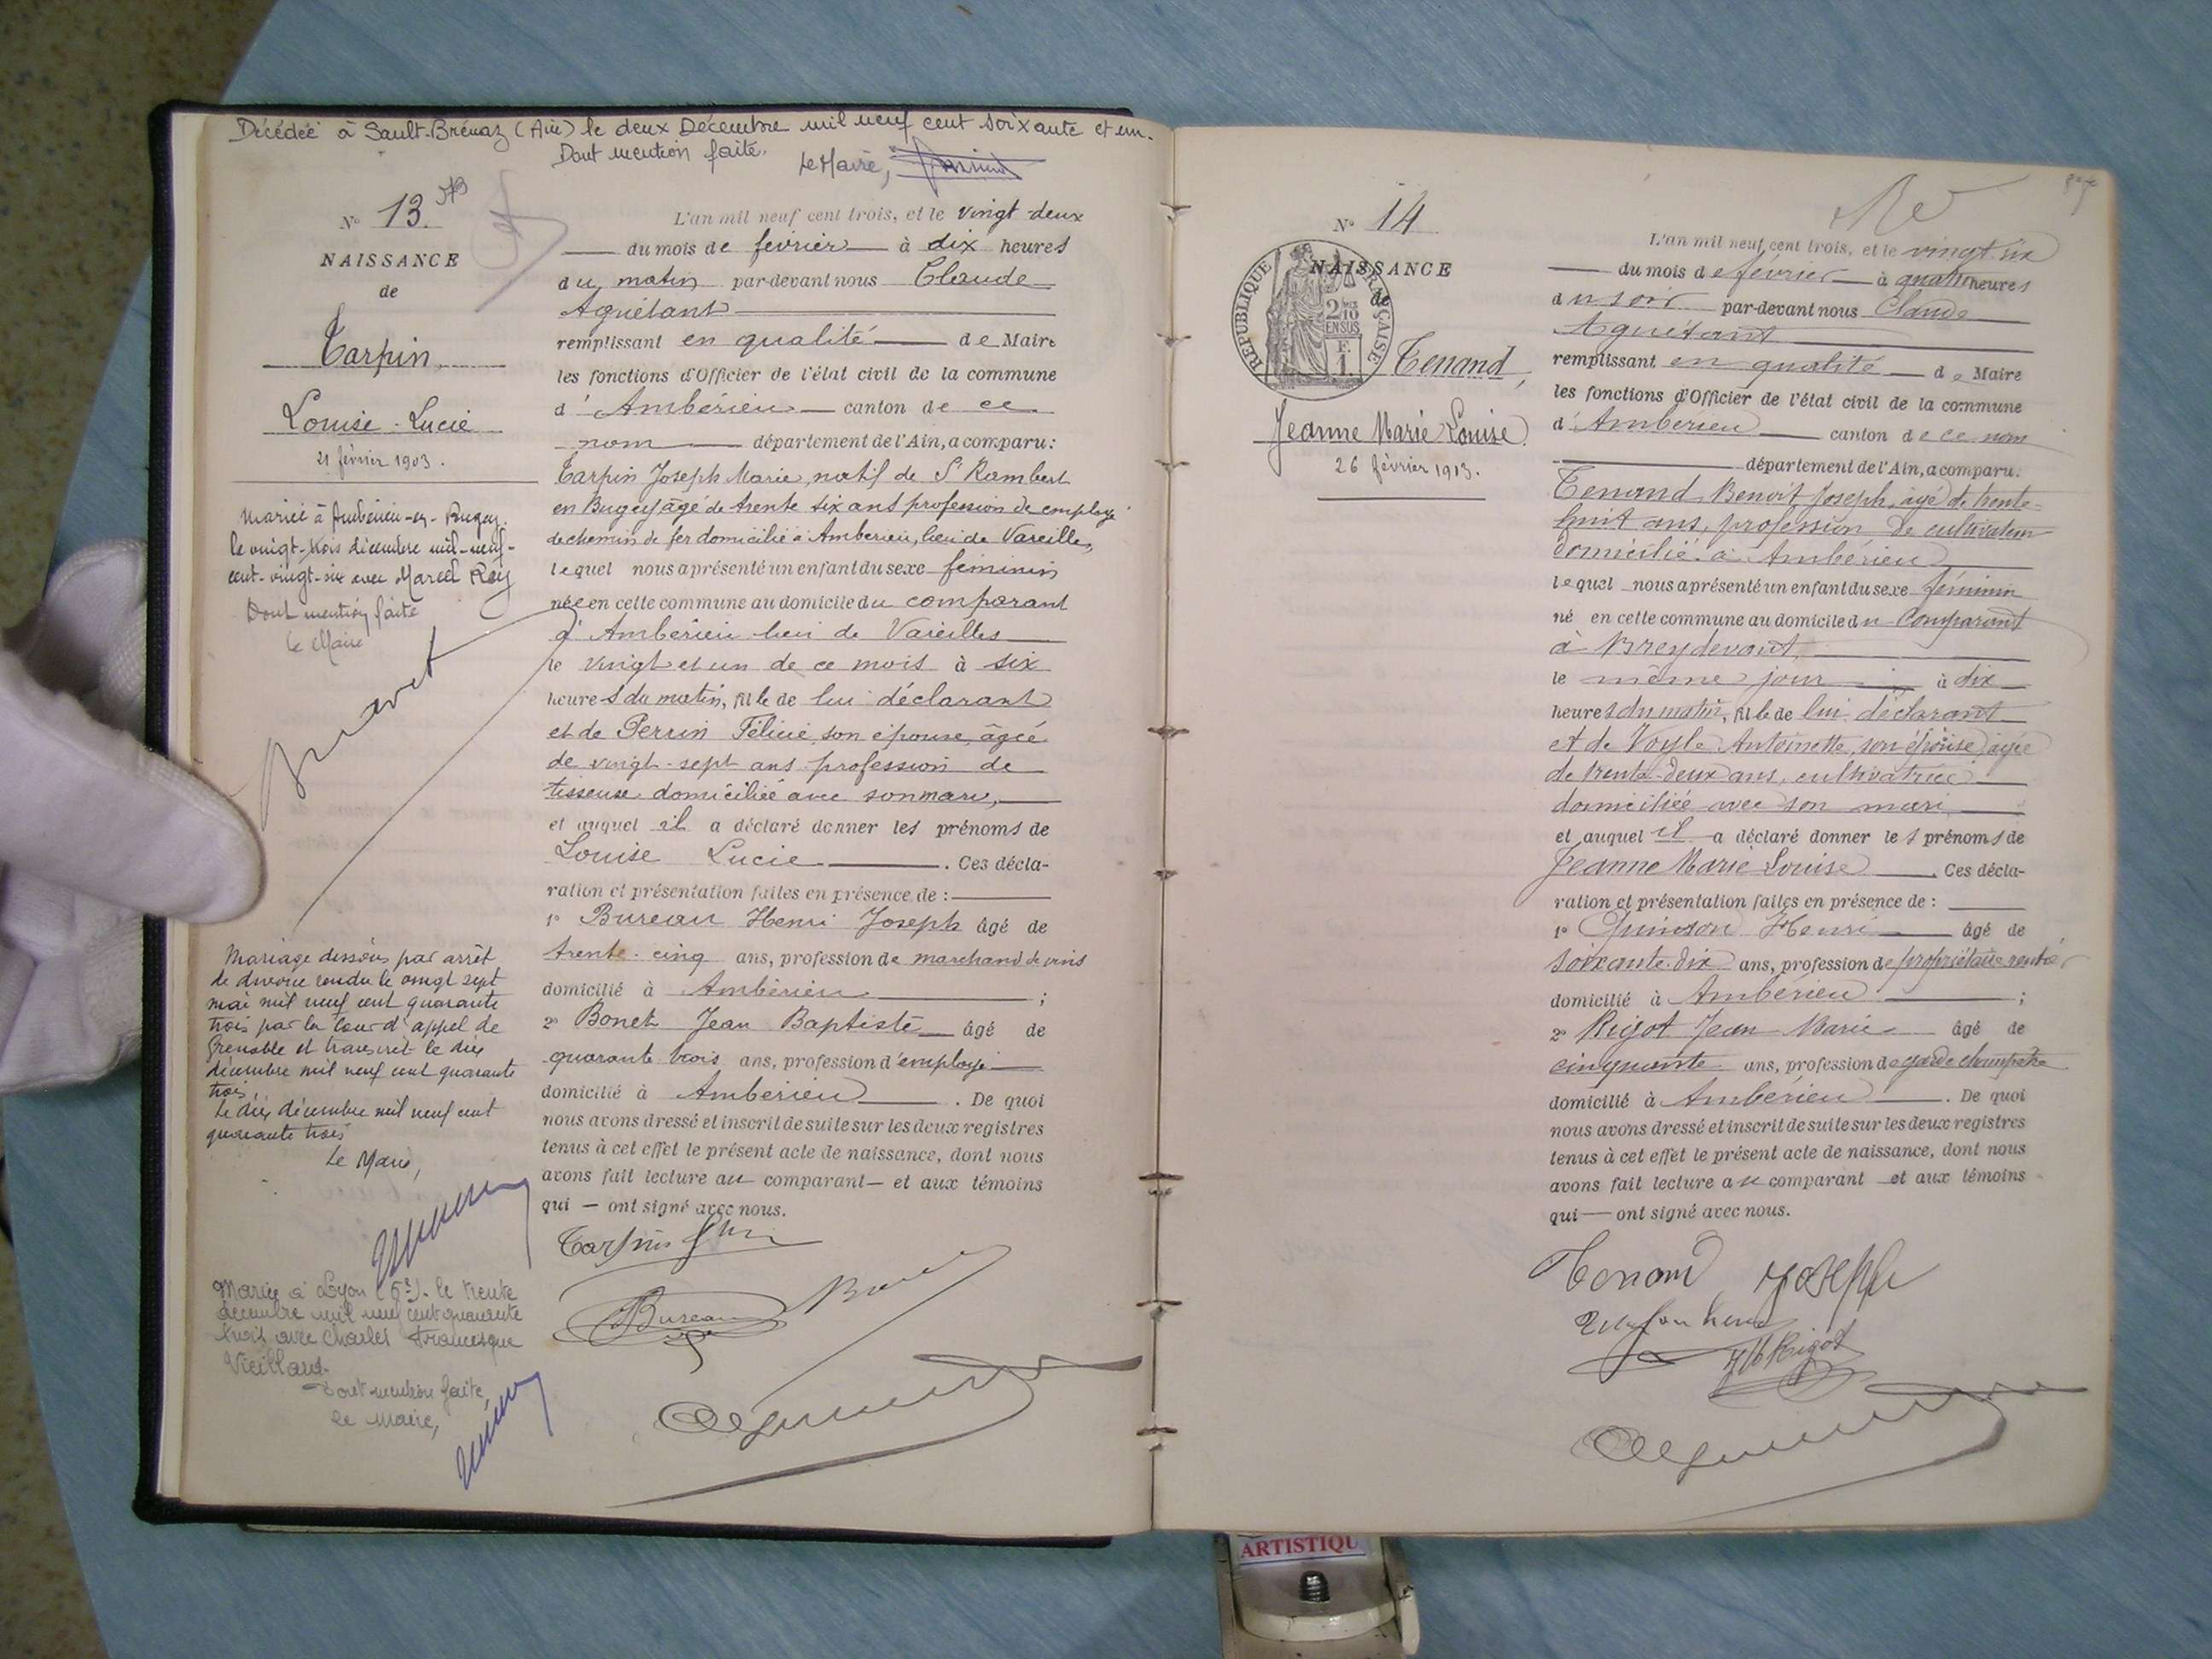 Décédée à Sault-Brénaz (Ain) le deux Décembre mil neuf cent soixante et un.
Dont mention faite. Le Maire,
N° 13.
NAISSANCE
de
Tarpin
Louise-Lucie
21 février 1903.
Mariée à Ambérieu-en-Bugey
le vingt-trois décembre mil-neuf-
cent-vingt-six avec Marcel Rey
Dont mention faite
le Maire
Mariage dissous par arrêt
de divorce rendu le vingt sept
mai mil neuf cent quarante
trois par la Cour d'appel de
Grenoble et transcrit le dix
décembre mil neuf cent quarante
trois.
Le dix décembre mil neuf cent
quarante trois
Le Maire,
Mariée à Lyon (5e). le trente
décembre mil neuf cent quarante
trois avec Charles Francisque
Vieillard.
Dont mention faite,
Le Maire,
L'an mil neuf cent trois, et le vingt-deux
du mois de février à dix heures
du matin par-devant nous Claude
Aguétant
remplissant en qualité de Maire
les fonctions d'Officier de l'état civil de la commune
d'Ambérieu canton de ce
nom département de l'Ain, a comparu:
Tarpin Joseph Marie, natif de St Rambert
en Bugey âgé de trente six ans profession de employé
de chemin de fer domicilié à Ambérieu, lieu de Vareilles,
lequel nous a présenté un enfant du sexe féminin
née en cette commune au domicile du comparant
à Ambérieu lieu de Vareilles
le vingt et un de ce mois à six
heures du matin, fille de lui déclarant
et de Perrin Félicie, son épouse, âgée
de vingt-sept ans profession de
tisseuse domiciliée avec son mari,
et auquel il a déclaré donner les prénoms de
Louise Lucie . Ces décla-
ration et présentation faites en présence de :
1° Bureau Henri Joseph âgé de
trente-cinq ans, profession de marchand de vins
domicilié à Ambérieu ;
2° Bonet Jean Baptiste âgé de
quarante trois ans, profession d'employé
domicilié à Ambérieu . De quoi
nous avons dressé et inscrit de suite sur les deux registres
tenus à cet effet le présent acte de naissance, dont nous
avons fait lecture au comparant et aux témoins
qui — ont signé avec nous.
Tarpin
Bureau
N° 14
NAISSANCE
de
RÉPUBLIQUE FRANÇAISE
2/10
EN SUS
F.
1.
Tenand,
Jeanne Marie Louise
26 février 1913.
L'an mil neuf cent trois, et le vingt six
du mois de février à quatre heures
du soir par-devant nous Claude
Aguétant
remplissant en qualité de Maire
les fonctions d'Officier de l'état civil de la commune
d'Ambérieu canton de ce nom
département de l'Ain, a comparu:
Tenand Benoit Joseph, âgé de trente-
huit ans, profession de cultivateur
domicilié à Ambérieu
lequel nous a présenté un enfant du sexe féminin
né en cette commune au domicile du Comparant
à Breydevant,
le même jour à dix
heures du matin, fille de lui déclarant
et de Voyle Antoinette, son épouse, âgée
de trente-deux ans, cultivatrice
domiciliée avec son mari,
et auquel il a déclaré donner les prénoms de
Jeanne Marie Louise . Ces décla-
ration et présentation faites en présence de :
1° Quinson Henri âgé de
soixante-dix ans, profession de propriétaire rentier
domicilié à Ambérieu ;
2° Rigot Jean Marie âgé de
cinquante ans, profession de garde champêtre
domicilié à Ambérieu . De quoi
nous avons dressé et inscrit de suite sur les deux registres
tenus à cet effet le présent acte de naissance, dont nous
avons fait lecture au comparant et aux témoins
qui — ont signé avec nous.
Tenand Joseph
Rigot
ARTISTIQU